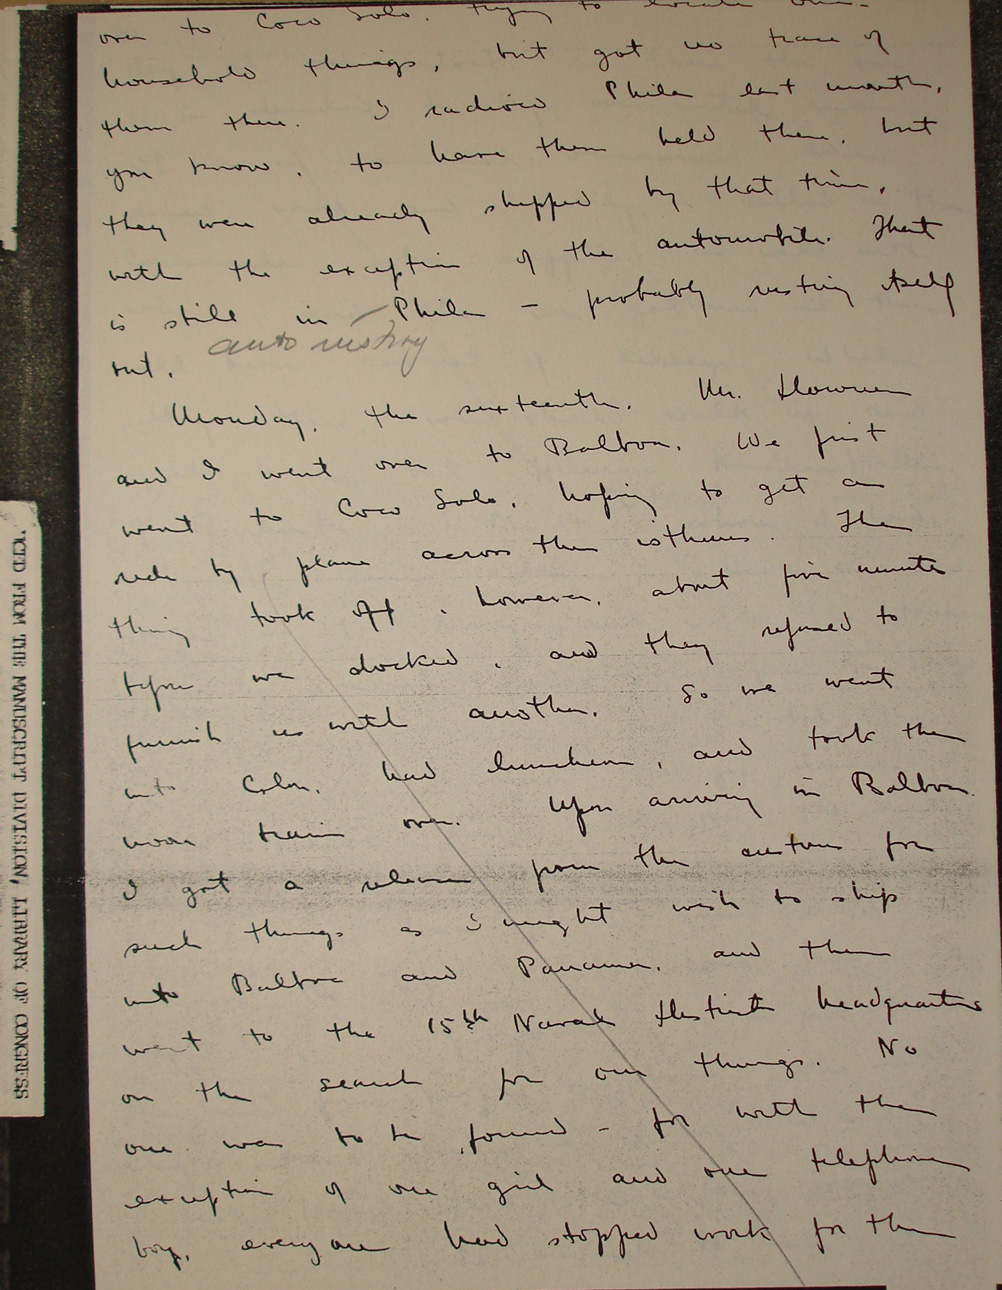 over to Coco Solo. trying to locate our
household things, but got no trace of
them there. I radioed Phila last month,
you know, to have them held there, but
they were already shipped by that time,
with the exception of the automobile. That
is still in Phila — probably rusting itself
out.
auto rusting
Monday, the sixteenth, Mr.
and I went over to Balboa. We first
went to Coco Solo, hoping to get a
ride by plane across the isthmus. The
thing took off, however, about five minutes
before we docked, and they refused to
furnish us with another. So we went
into Colon, had luncheon, and took the
noon train over. Upon arriving in Balboa
I got a release from the customs for
such things as I might wish to ship
into Balboa and Panama, and then
went to the 15th Naval District headquarters
on the search for our things. No
one was to be found - for with the
exception of one girl and one telephone
boy, everyone had stopped work for the
'ICED FROM THE MANUSCRIPT DIVISION, LIBRARY OF CONGRESS